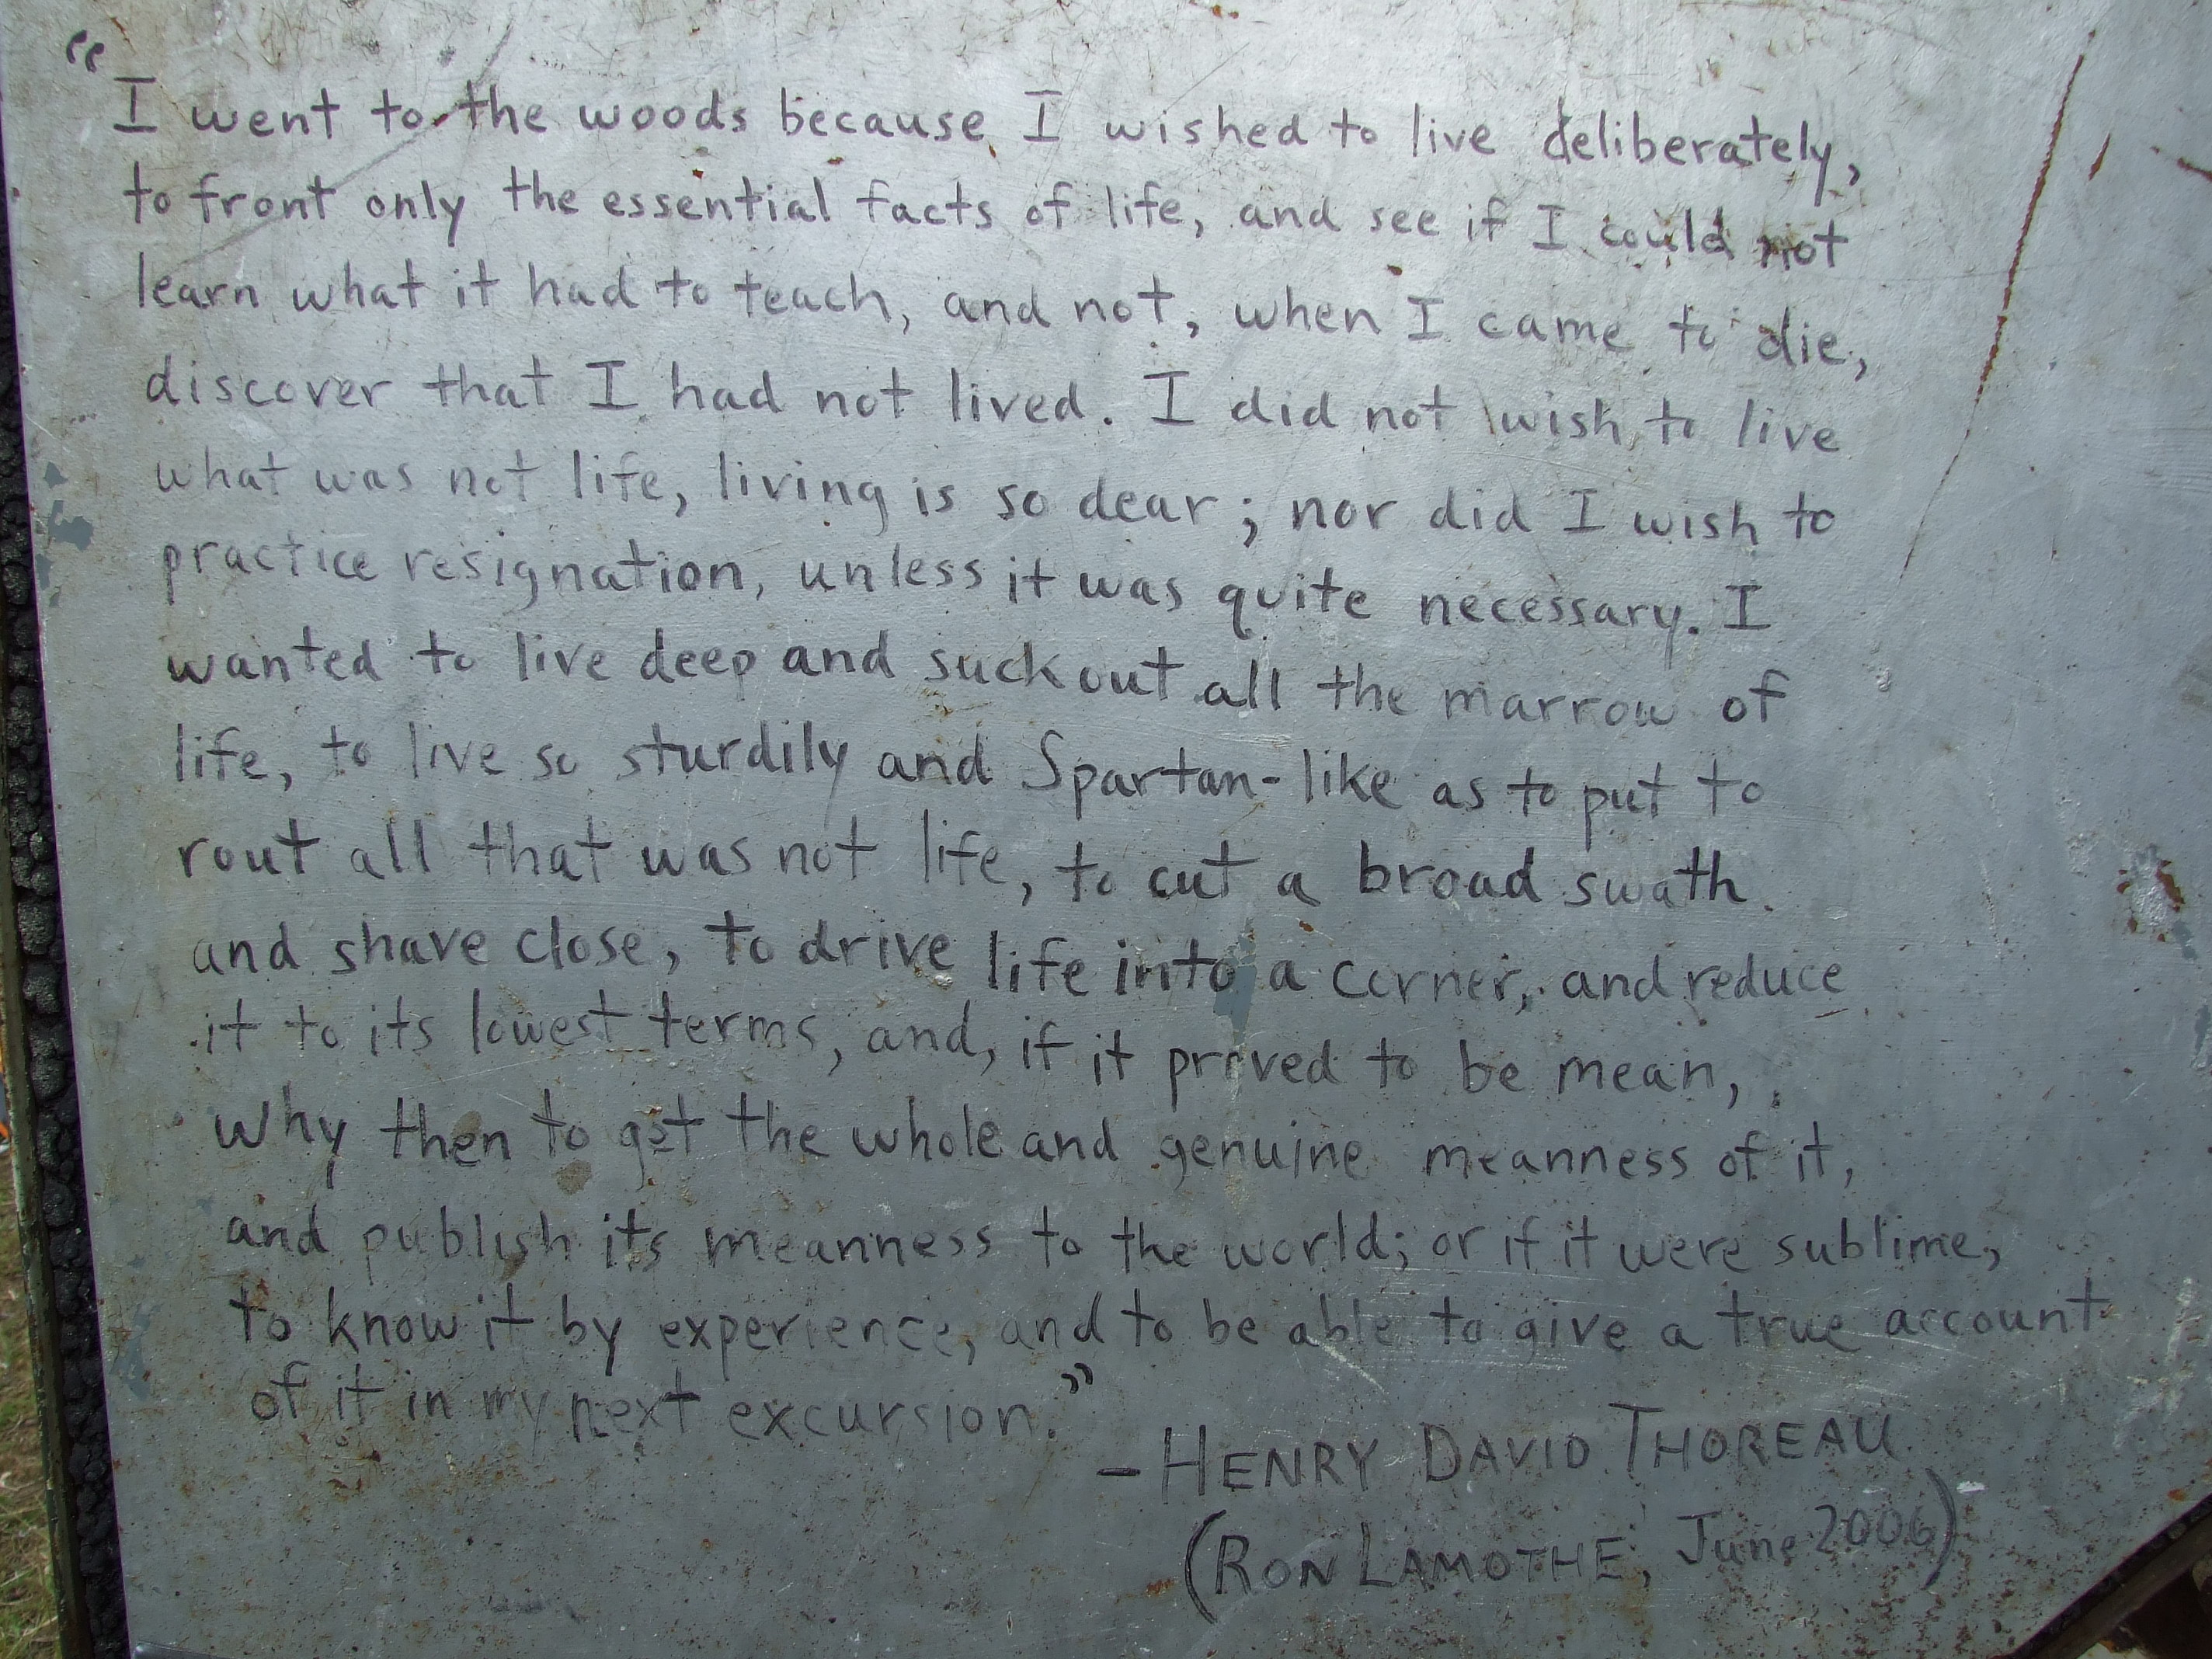 “I went to the woods because I wished to live deliberately,
to front only the essential facts of life, and see if I could not
learn what it had to teach, and not, when I came to die,
discover that I had not lived. I did not wish to live
what was not life, living is so dear; nor did I wish to
practice resignation, unless it was quite necessary. I
wanted to live deep and suck out all the marrow of
life, to live so sturdily and Spartan-like as to put to
rout all that was not life, to cut a broad swath
and shave close, to drive life into a corner, and reduce
it to its lowest terms, and, if it proved to be mean,
why then to get the whole and genuine meanness of it,
and publish its meanness to the world; or if it were sublime,
to know it by experience, and to be able to give a true account
of it in my next excursion.”
– HENRY DAVID THOREAU
(RON LAMOTHE, June 2006)